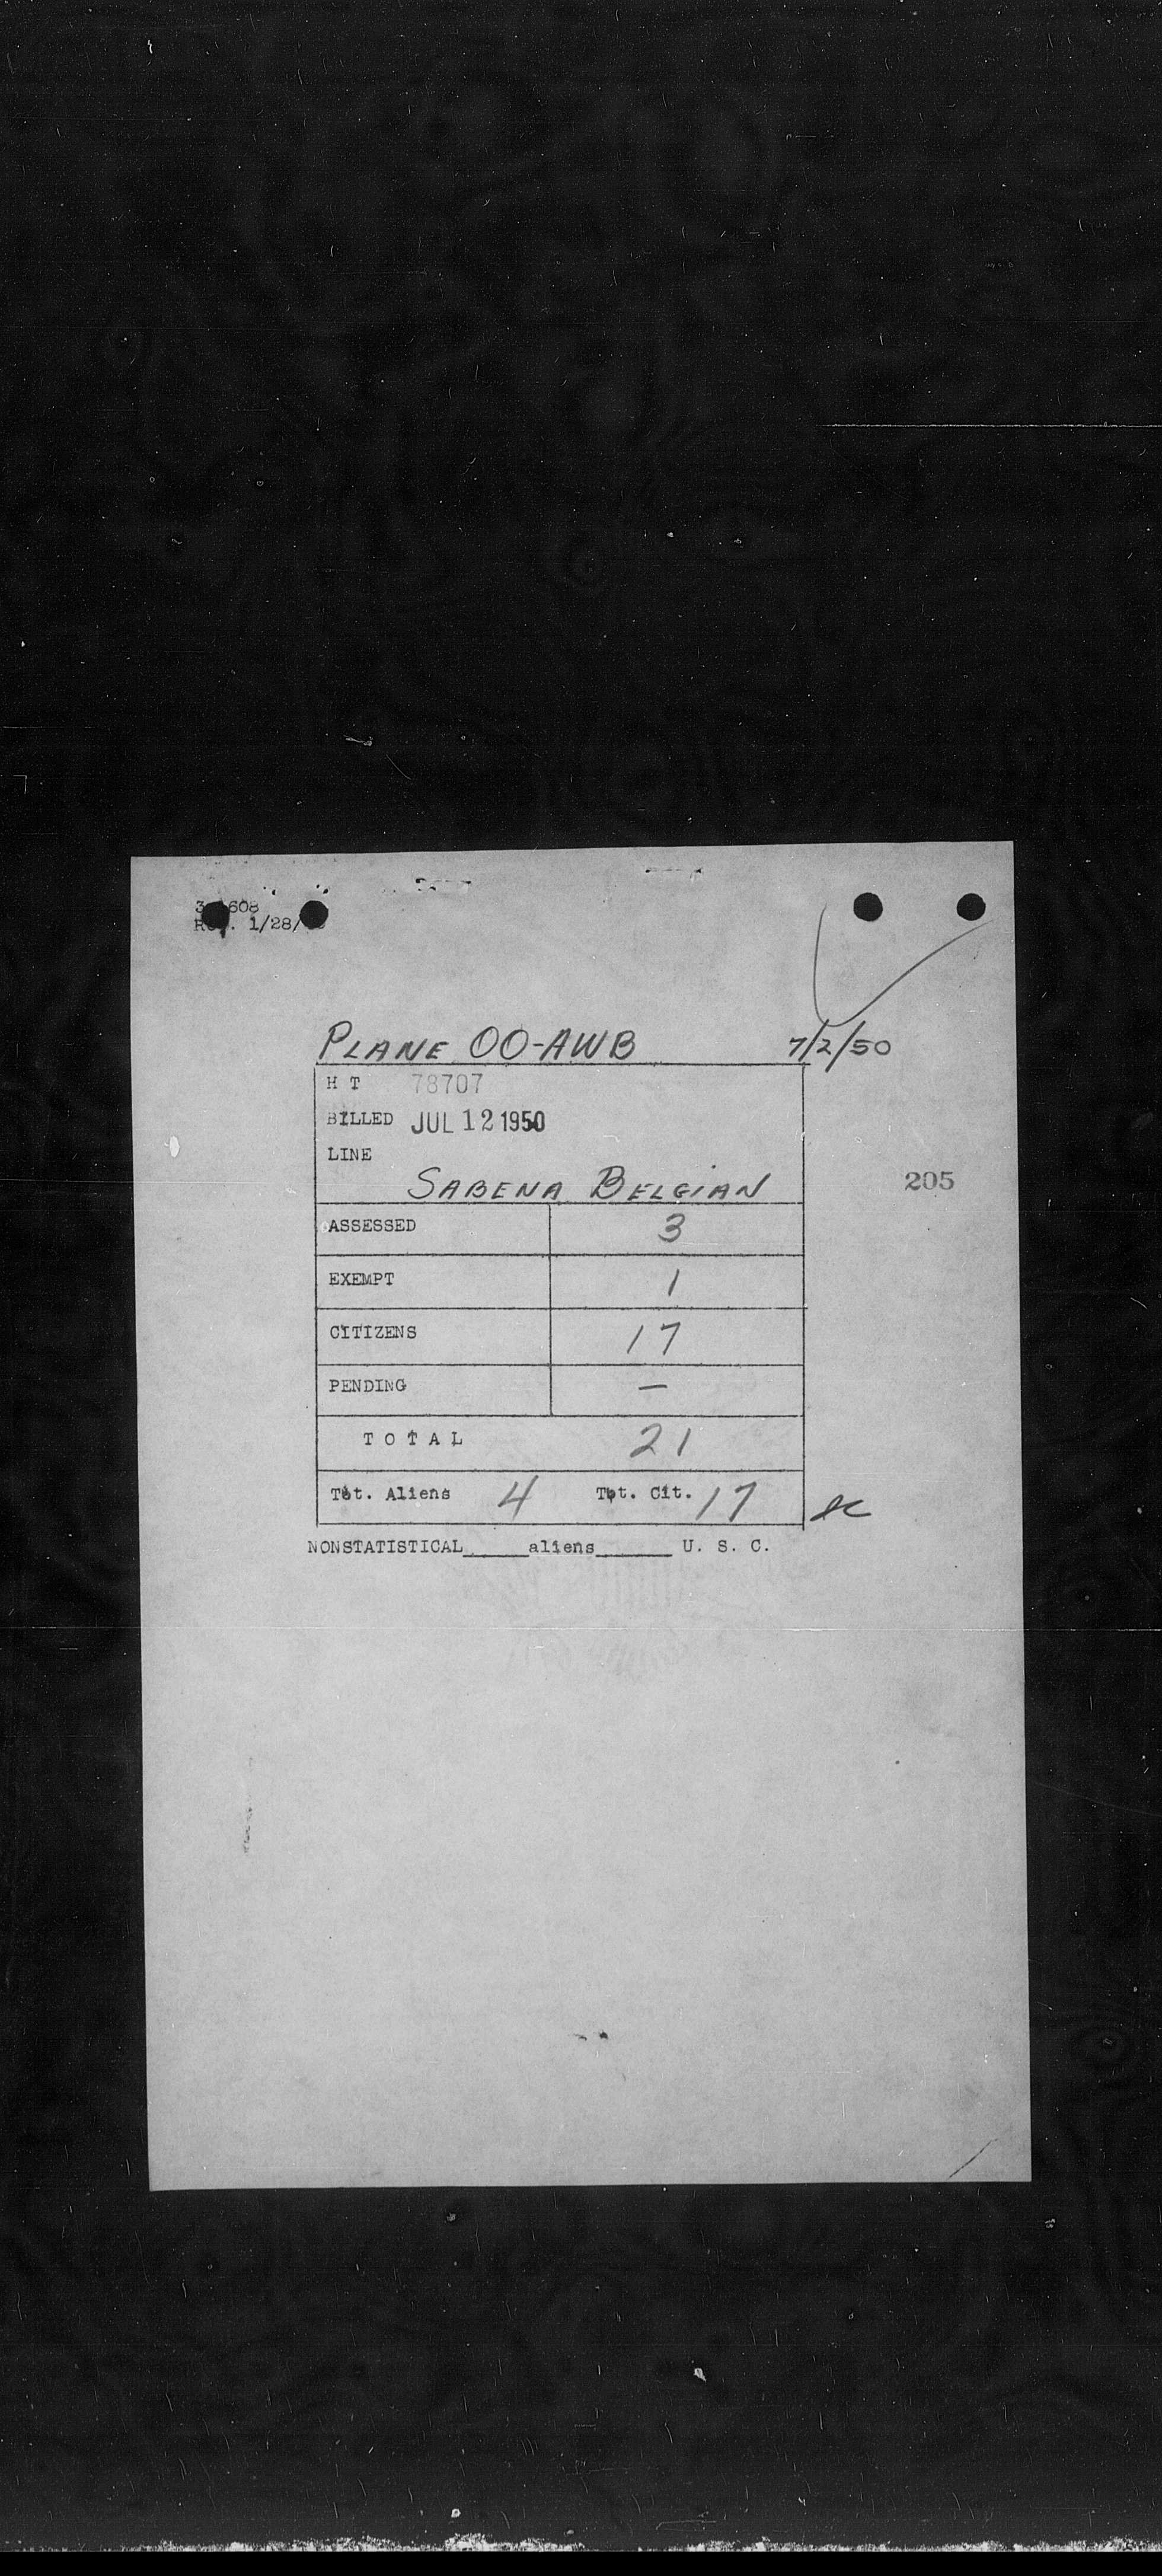 608
1/28/
PLANE OO-AWB 7/2/50
H T 78707
BILLED JUL 12 1950
LINE
SABENA BELGIAN
205
ASSESSED 3
EXEMPT 1
CITIZENS 17
PENDING —
TOTAL 21
Tot. Aliens 4 Tot. Cit. 17
NONSTATISTICAL_____aliens______ U. S. C.